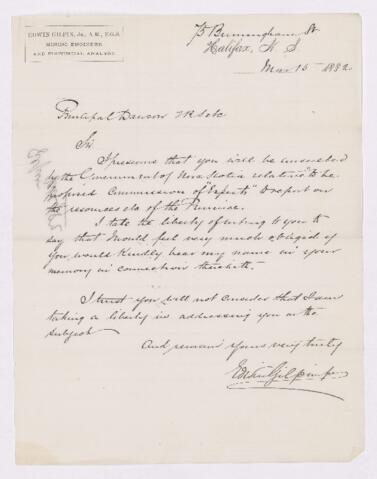 EDWIN GILPIN, Jr., A.M., F.G.S.
MINING ENGINEER
AND PROVINCIAL ANALYST.
75 Birmingham St
Halifax, N. S.
Mar 15 1882
Principal Dawson FRS etc
Sir
I presume that you will be consulted
by the Government of Nova Scotia relative to the
proposed Commission of "Experts" to report on
the resources etc of the Province.
I take the liberty of writing to you to
say that I would feel very much obliged if
you would kindly bear my name in your
memory in connection therewith.
I trust you will not consider that I am
taking a liberty in addressing you on the
subject
And remain yours very truly
Edwin Gilpin jr.